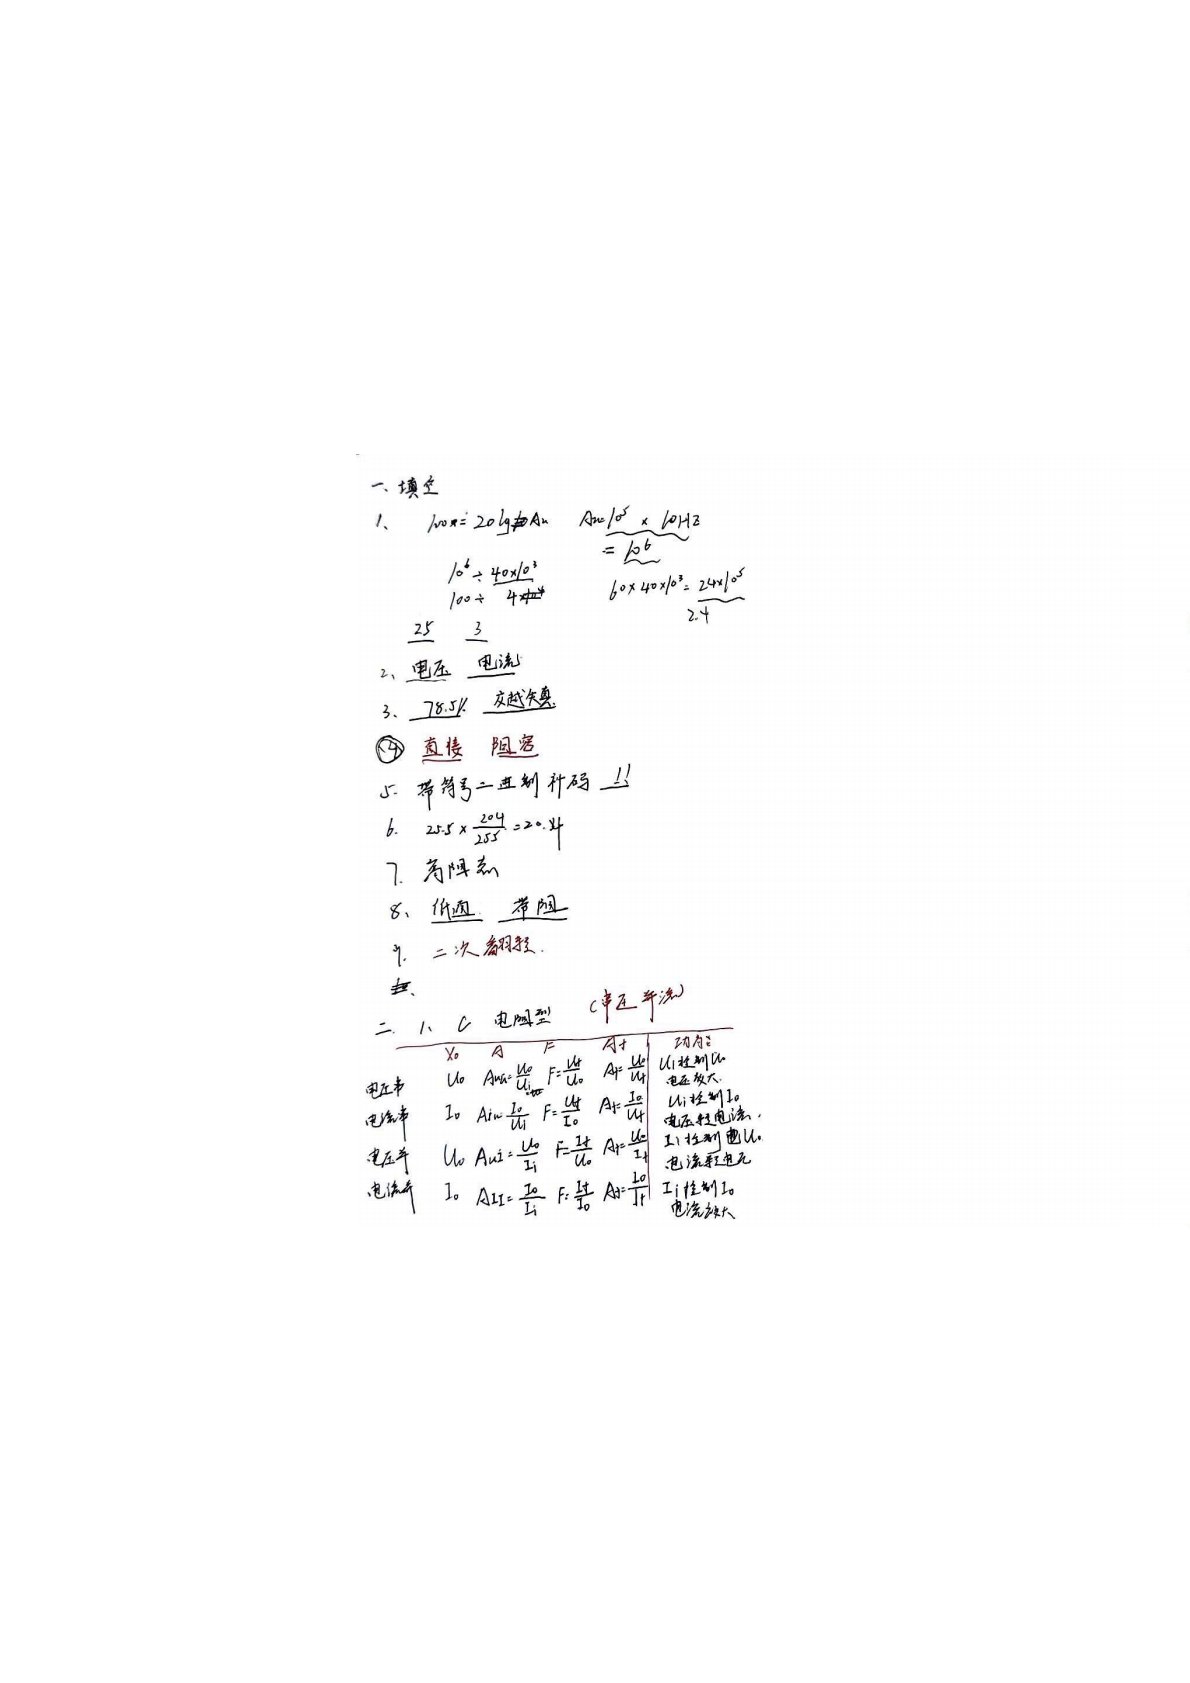 一、填空
1、 100x=20lg Au Au=10⁵ × 10HZ
= 10⁶
10⁶ ÷ 40×10³ 60×40×10³= 24×10⁵
100÷ 4 2.4
25 3
2、电压 电流
3、78.5% 交越失真
④ 直接 阻容
5. 带符号二进制补码 !!
6. 25.5×204/255=20.4
7. 高阻态
8、低通 带阻
9. 二次翻转.
二 1、C 电阻型 (电压并流)
Xo A F Af 功能
电压串 Uo Auu=Uo/Ui F=Uf/Uo Af=Uo/Uf Ui控制Uo
电压放大.
电流串 Io Aiu=Io/Ui F=Uf/Io Af=Io/Uf Ui控制Io
电压转电流.
电压并 Uo Aui=Uo/Ii F=If/Uo Af=Uo/If Ii控制电Uo
电流转电压
电流并 Io AII=Io/Ii F=If/Io Af=Io/If Ii控制Io
电流放大